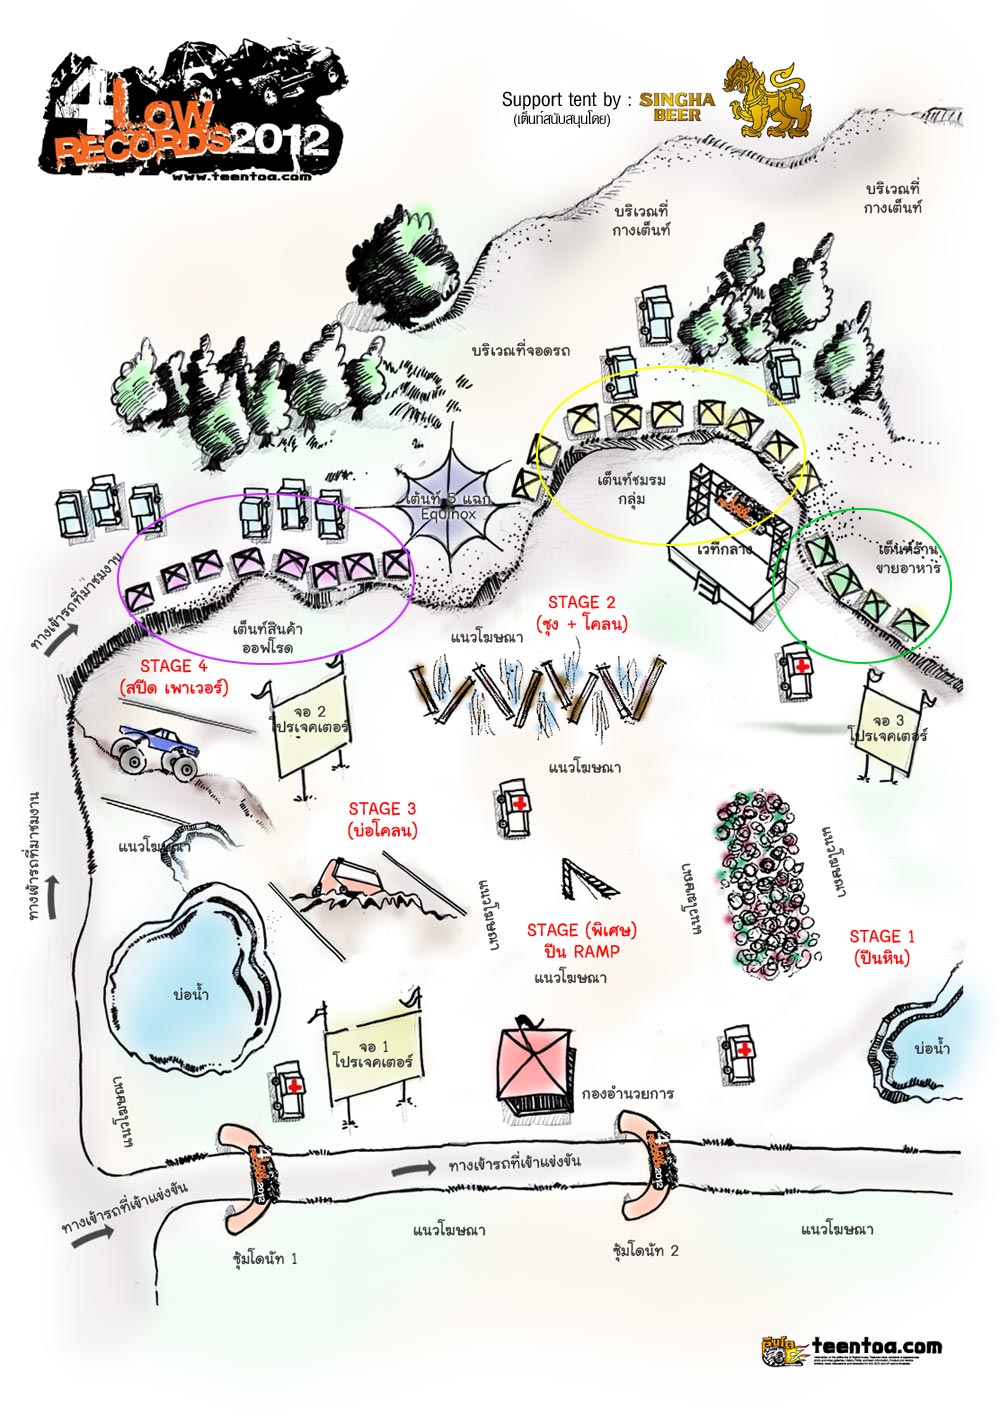 4Low
RECORDS2012
www.teentoa.com
Support tent by : SINGHA BEER
(เต็นท์สนับสนุนโดย)
บริเวณที่
กางเต็นท์
บริเวณที่
กางเต็นท์
บริเวณที่จอดรถ
เต็นท์ 5 แฉก
Equinox
เต็นท์ชมรม
กลุ่ม
เวทีกลาง
เต็นท์ร้าน
ขายอาหาร
ทางเข้ารถที่มาชมงาน
เต็นท์สินค้า
ออฟโรด
แนวโฆษณา
STAGE 2
(ซุง + โคลน)
STAGE 4
(สปีด เพาเวอร์)
จอ 2
โปรเจคเตอร์
จอ 3
โปรเจคเตอร์
แนวโฆษณา
STAGE 3
(บ่อโคลน)
แนวโฆษณา
ทางเข้ารถที่มาชมงาน
แนวโฆษณา
แนวโฆษณา
แนวโฆษณา
STAGE (พิเศษ)
ปีน RAMP
แนวโฆษณา
STAGE 1
(ปีนหิน)
บ่อน้ำ
จอ 1
โปรเจคเตอร์
บ่อน้ำ
กองอำนวยการ
แนวโฆษณา
ทางเข้ารถที่เข้าแข่งขัน
ทางเข้ารถที่เข้าแข่งขัน
4Low 2012
4Low 2012
แนวโฆษณา
แนวโฆษณา
ซุ้มโดนัท 1
ซุ้มโดนัท 2
teentoa.com